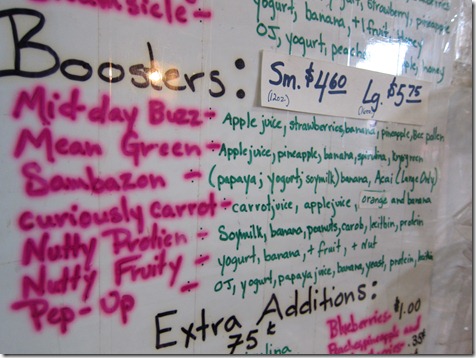 yogurt, banana, + 1 fruit, Honey
OJ, yogurt, honey
Boosters:
Sm. $4.60 Lg. $5.75
(12oz.)
Mid-day Buzz - Apple juice, strawberries, banana, pineapple, Bee pollen
Mean Green - Apple juice, pineapple, banana, spirulina,
Sambazon - (papaya j yogurt, soymilk) banana, Acai (Large Only)
curiously carrot - carrot juice, apple juice, orange and banana
Nutty Protien - Soymilk, banana, peanuts, carob, lecithin, protein
Nutty Fruity - yogurt, banana, + fruit, + nut
Pep-Up - OJ, yogurt, papaya juice, banana, yeast, protein,
Extra Additions:
75¢
Blueberries $1.00